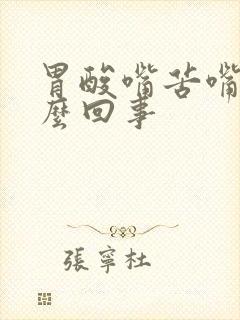 胃酸嘴苦嘴
麼回事
張寧杜